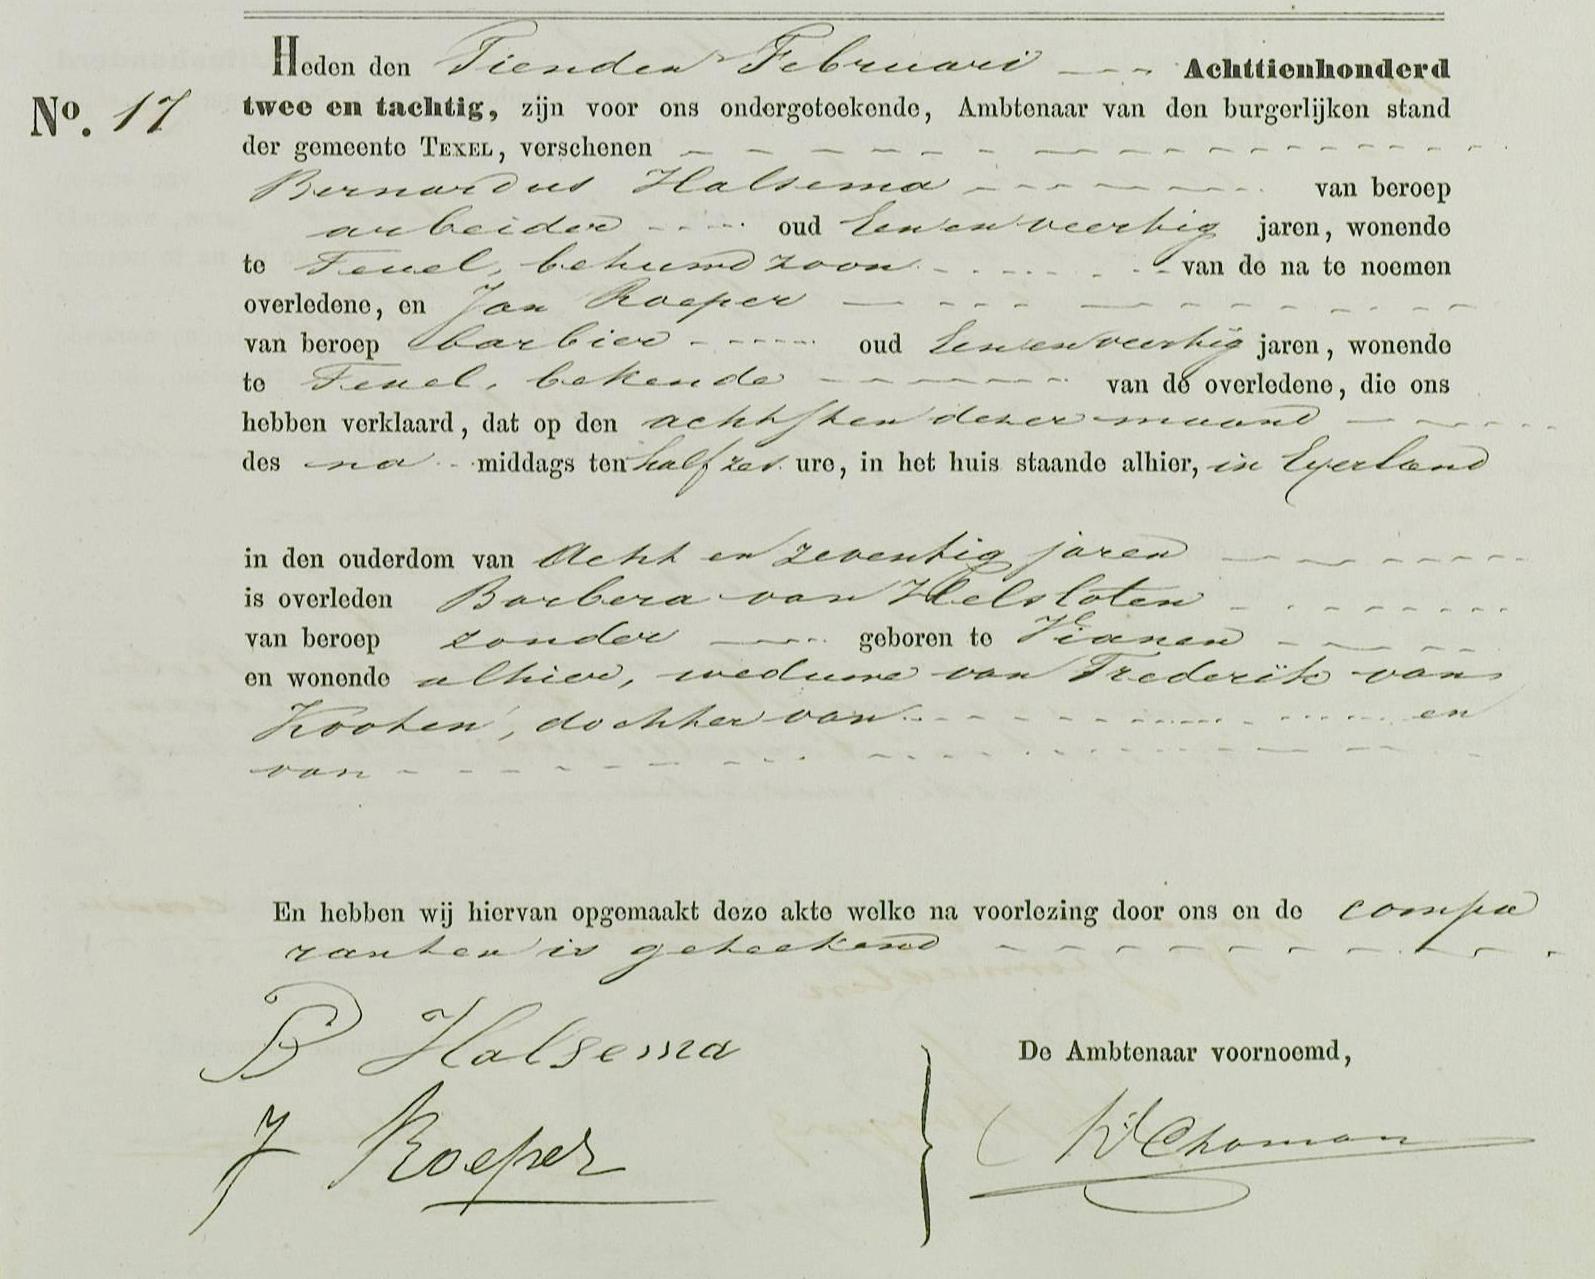 Heden den Tienden Februari Achttienhonderd
No. 17 twee en tachtig, zijn voor ons ondergeteekende, Ambtenaar van den burgerlijken stand
der gemeente TEXEL, verschenen
Bernardus Halsema van beroep
arbeider oud Eenenveertig jaren, wonende
te Texel, behuwd zoon van de na te noemen
overledene, en Jan Roeper
van beroep barbier oud Eenenveertig jaren, wonende
te Texel, bekende van de overledene, die ons
hebben verklaard, dat op den achtsten dezer maand
des na middags ten half zes ure, in het huis staande alhier, in Eyerland
in den ouderdom van Acht en zeventig jaren
is overleden Barbera van Helsloten
van beroep zonder geboren te Vianen
en wonende alhier, weduwe van Frederik van
Kooten, dochter van en
van
En hebben wij hiervan opgemaakt deze akte welke na voorlezing door ons en de compa
ranten is geteekend
B Halsema
De Ambtenaar voornoemd,
J Roeper